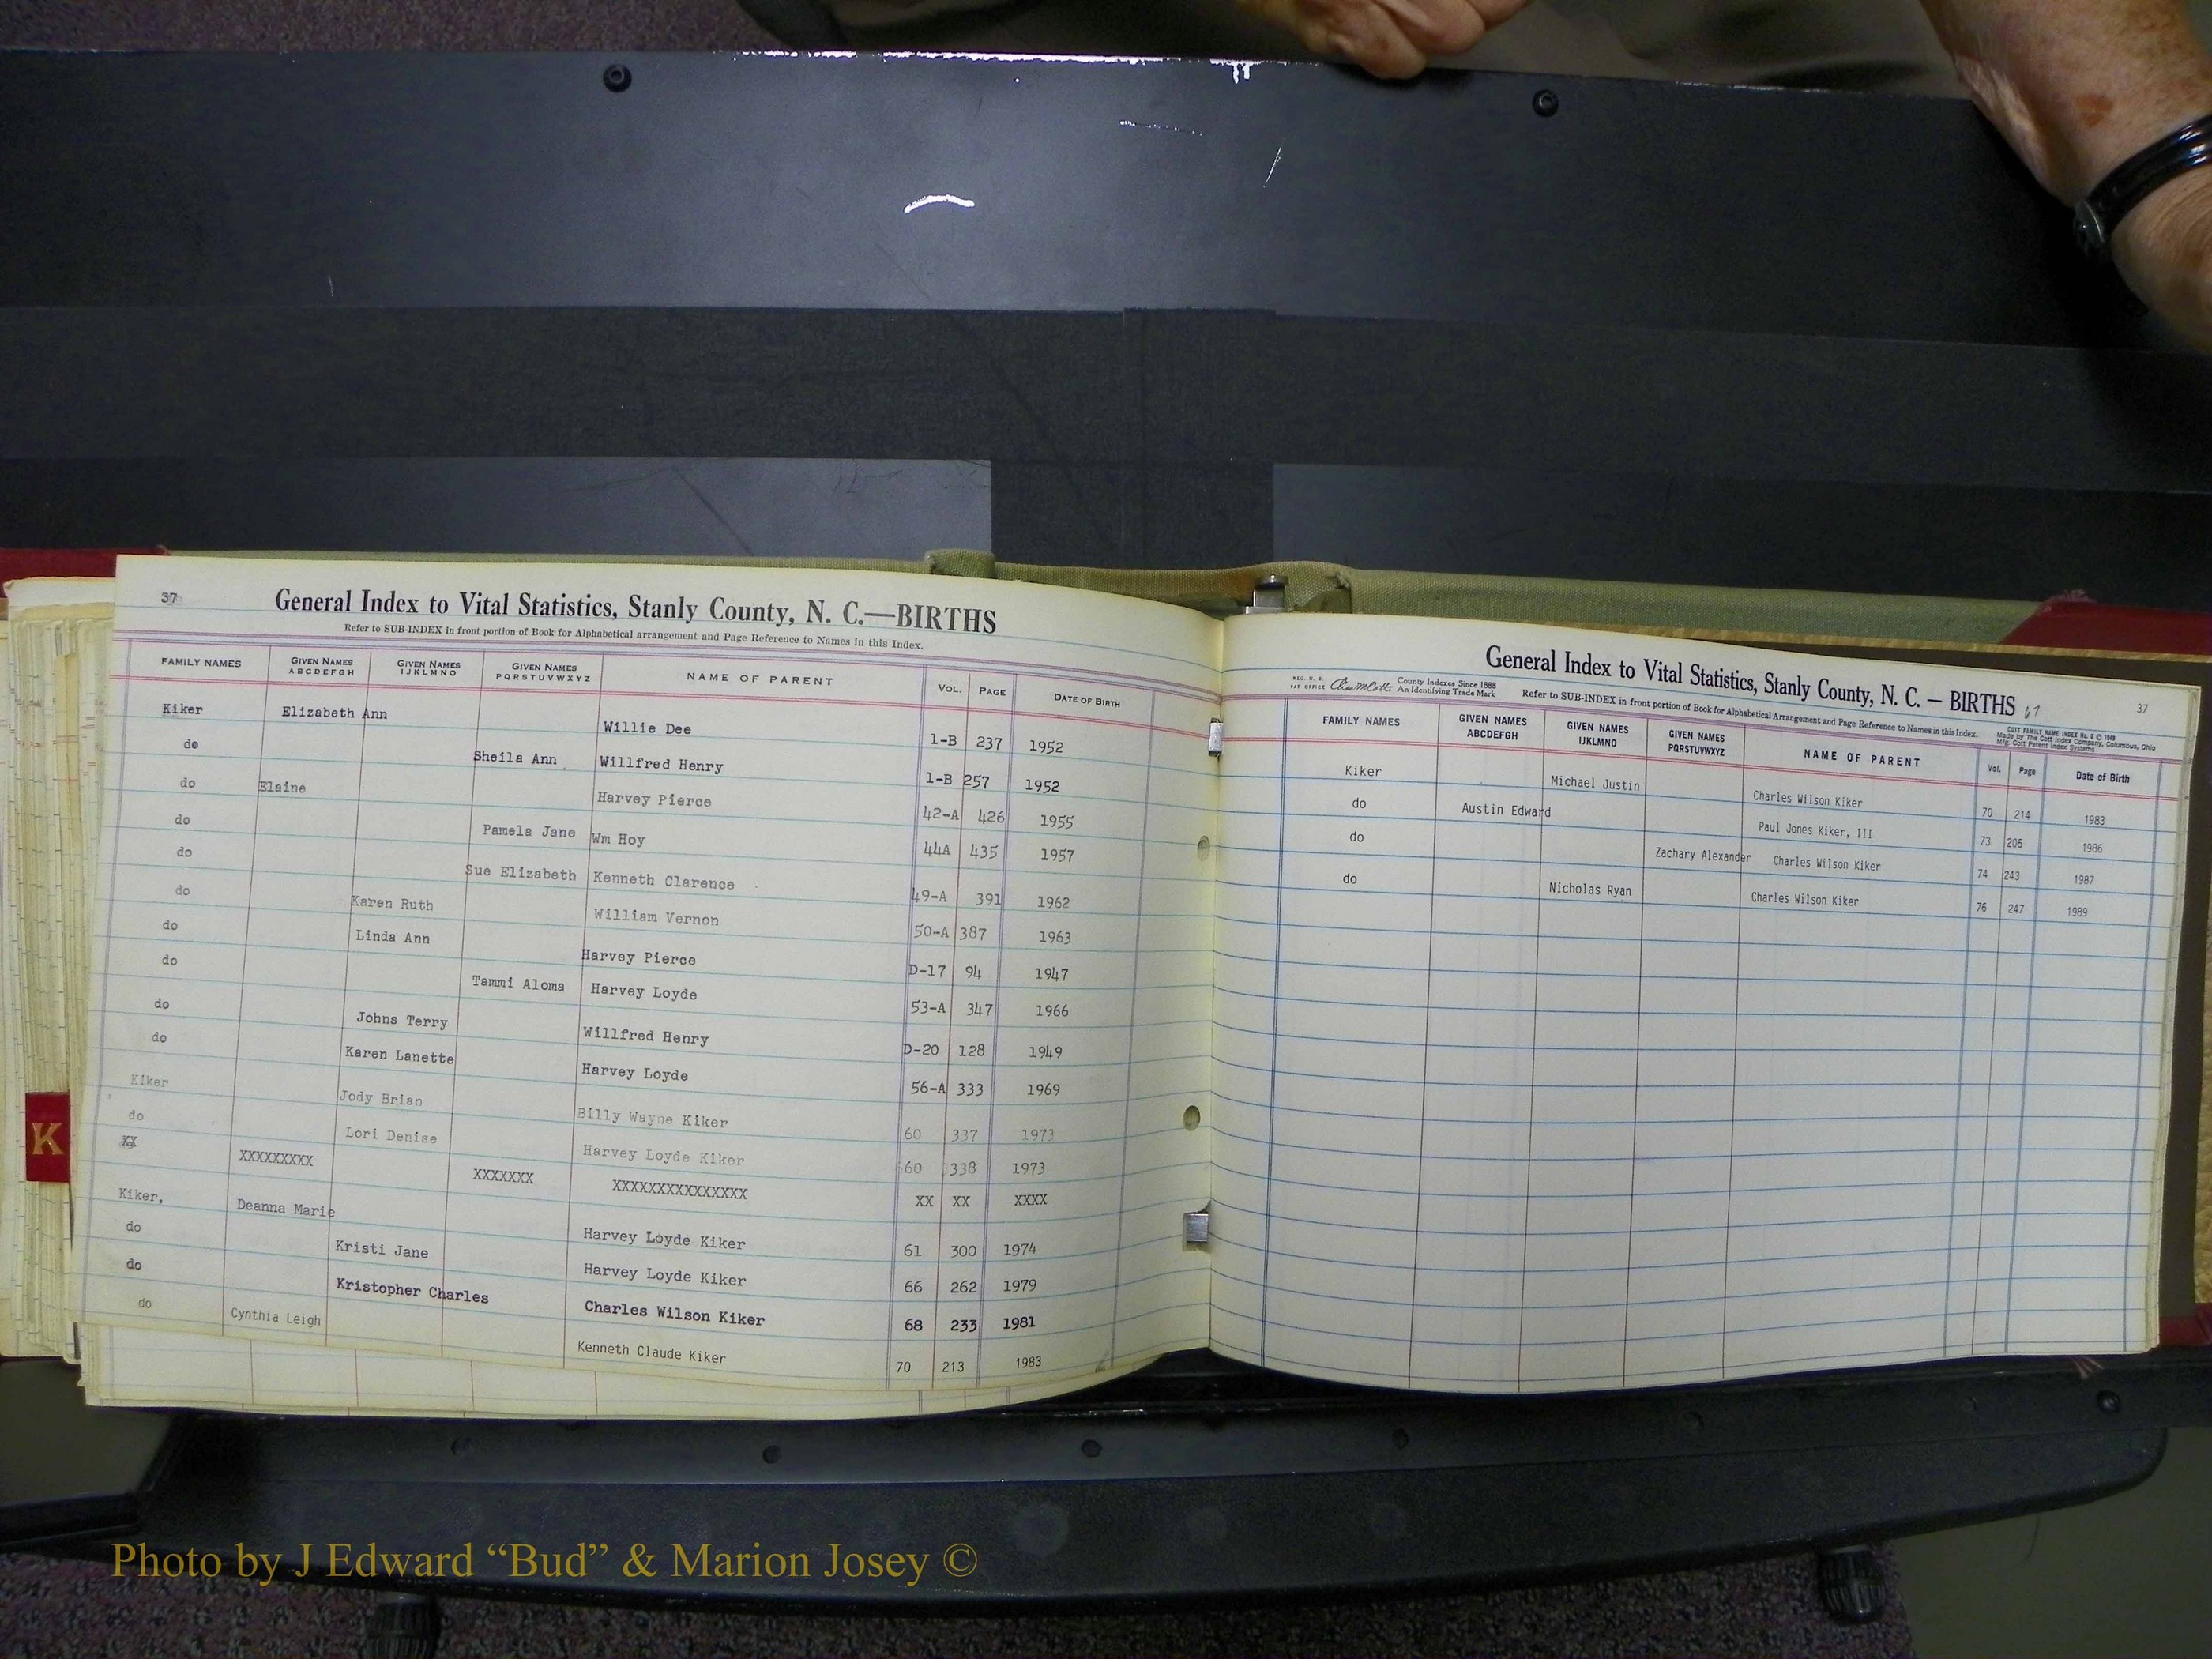 37
General Index to Vital Statistics, Stanly County, N. C.—BIRTHS
Refer to SUB-INDEX in front portion of Book for Alphabetical arrangement and Page Reference to Names In this Index.
FAMILY NAMES GIVEN NAMES ABCDEFGH GIVEN NAMES IJKLMNO GIVEN NAMES PQRSTUVWXYZ NAME OF PARENT VOL. PAGE DATE OF BIRTH
Kiker Elizabeth Ann Willie Dee 1-B 237 1952
do Sheila Ann Willfred Henry 1-B 257 1952
do Elaine Harvey Pierce 42-A 426 1955
do Pamela Jane Wm Hoy 44A 435 1957
do Sue Elizabeth Kenneth Clarence 49-A 391 1962
do Karen Ruth William Vernon 50-A 387 1963
do Linda Ann Harvey Pierce D-17 94 1947
do Tammi Aloma Harvey Loyde 53-A 347 1966
do Johns Terry Willfred Henry D-20 128 1949
do Karen Lanette Harvey Loyde 56-A 333 1969
Kiker Jody Brian Billy Wayne Kiker 60 337 1973
do Lori Denise Harvey Loyde Kiker 60 338 1973
XX XXXXXXXXX XXXXXXX XXXXXXXXXXXXXXX XX XX XXXX
Kiker, Deanna Marie Harvey Loyde Kiker 61 300 1974
do Kristi Jane Harvey Loyde Kiker 66 262 1979
do Kristopher Charles Charles Wilson Kiker 68 233 1981
do Cynthia Leigh Kenneth Claude Kiker 70 213 1983
K
General Index to Vital Statistics, Stanly County, N. C. — BIRTHS 67
37
REG. U. S. PAT OFFICE County Indexes Since 1888 An Identifying Trade Mark
Refer to SUB-INDEX in front portion of Book for Alphabetical Arrangement and Page Reference to Names in this Index.
COTT FAMILY NAME INDEX No. 6 © 1949
Made by The Cott Index Company, Columbus, Ohio
Mfg. Cott Patent Index Systems
FAMILY NAMES GIVEN NAMES ABCDEFGH GIVEN NAMES IJKLMNO GIVEN NAMES PQRSTUVWXYZ NAME OF PARENT Vol. Page Date of Birth
Kiker Michael Justin Charles Wilson Kiker 70 214 1983
do Austin Edward Paul Jones Kiker, III 73 205 1986
do Zachary Alexander Charles Wilson Kiker 74 243 1987
do Nicholas Ryan Charles Wilson Kiker 76 247 1989
Photo by J Edward “Bud” & Marion Josey ©